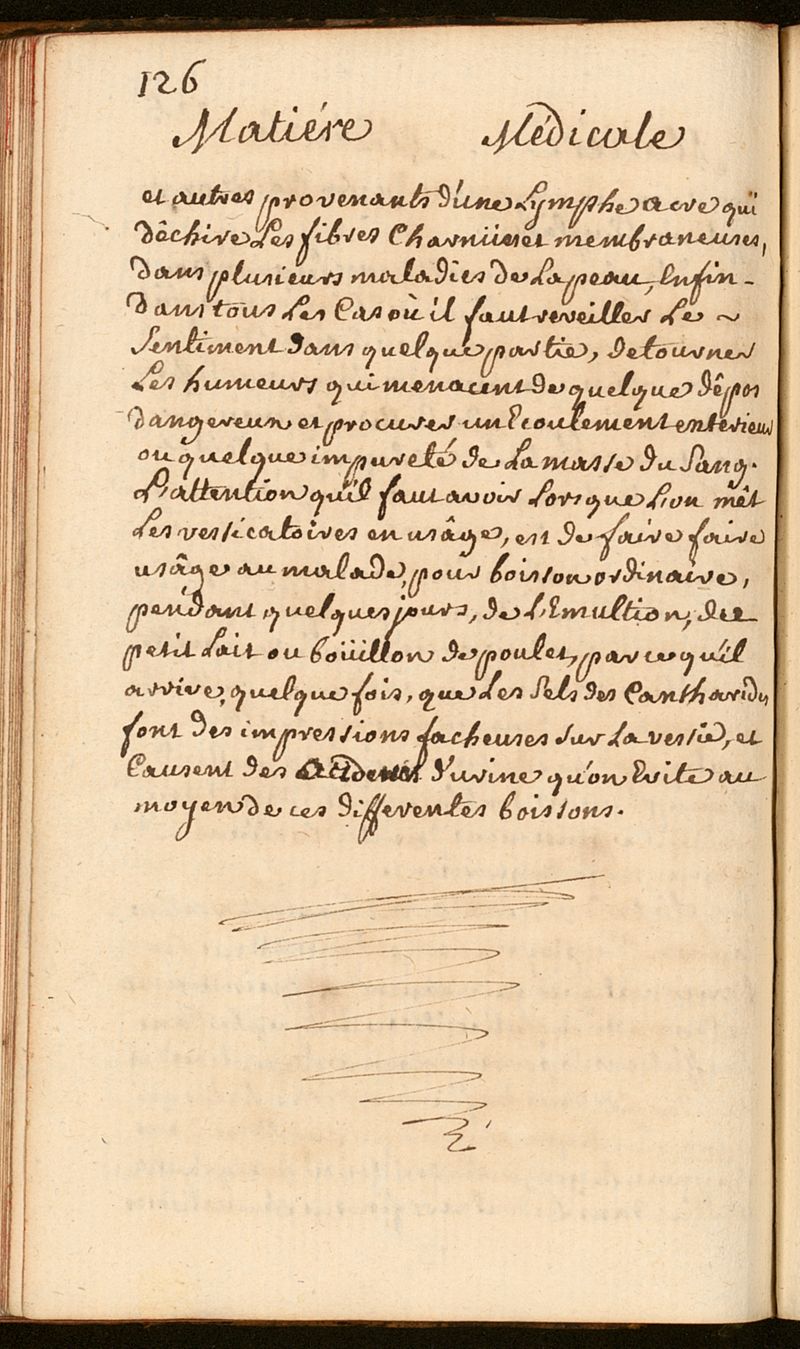 126
Matiére Médicale
et autres provenants d'une Lymphe acre qui
dêchire Les fibres Charnües et membraneuses,
dans plusieurs maladies de La peau, Enfin-
dans tous Les Cas où il faut reveiller Le ~
Sentiment dans quelque partie, detourner
Les humeurs qui menacent de quelque dêpos
dangereux et procurer un Ecoulement exterieur
ou quelque impureté de La masse du Sang.
L'attention qu'il faut avoir Lorsque L'on mêt
Les vessicatoires en usâge, est de faire faire
usâge au malade, pour boisson ordinaire,
pendant quelques jours, de L'Emultion, de
petit Lait ou boüillon de poulet, parce qu'il
arrive, quelque fois, que Les Sels des Cantharides
font des impressions facheuses sur La vessie, et
Causent des accidents d'urine qu'on Evite au
moyen de ces differentes boissons.